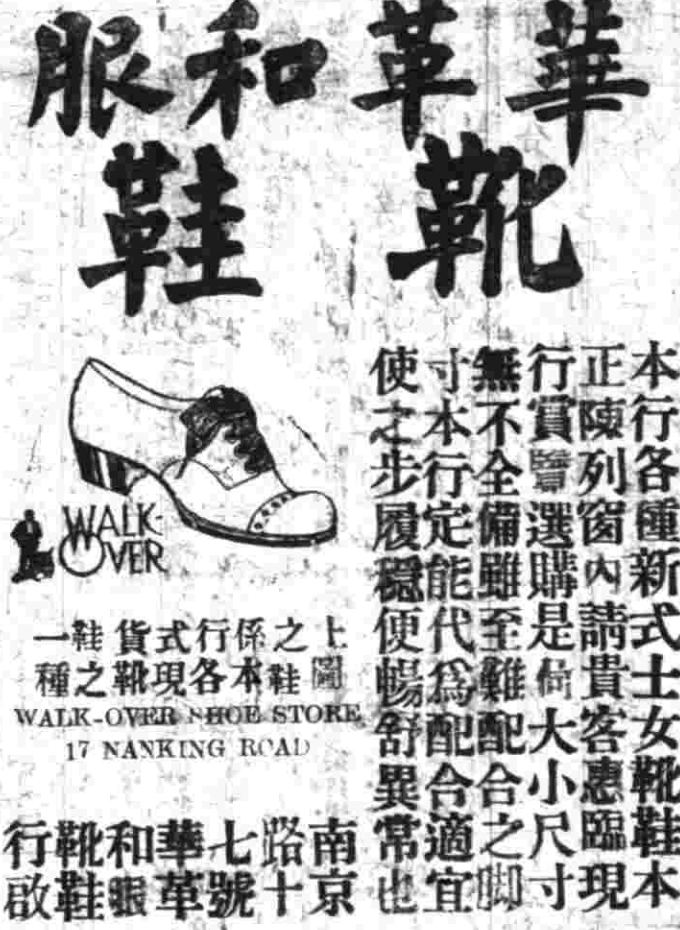 華革和服
靴鞋
本行各種新式士女靴鞋本
正陳列窗內請貴客惠臨現
行賞覽選購是荷大小尺寸
無不全備雖至難配合之脚
寸本行定能代爲配合適宜
使之步履穩便暢舒異常也
WALK-
OVER
上圖
之鞋
係本
行各
式現
貨靴
鞋之
一種
WALK-OVER SHOE STORE
17 NANKING ROAD
南京
路十
七號
華革
和服
靴鞋
行啟